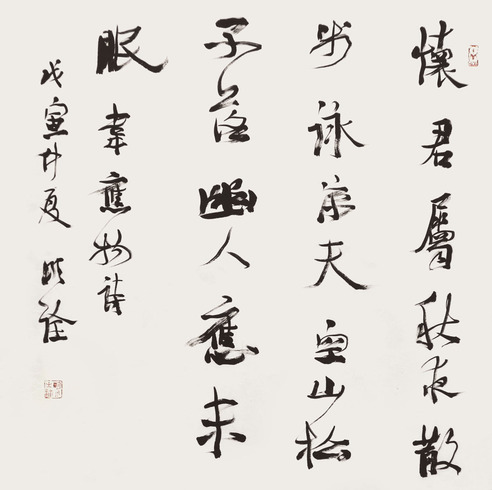 懷君屬秋夜散
步詠凉天空山松
子落幽人應未
眠韋應物詩
戊寅夏明詮